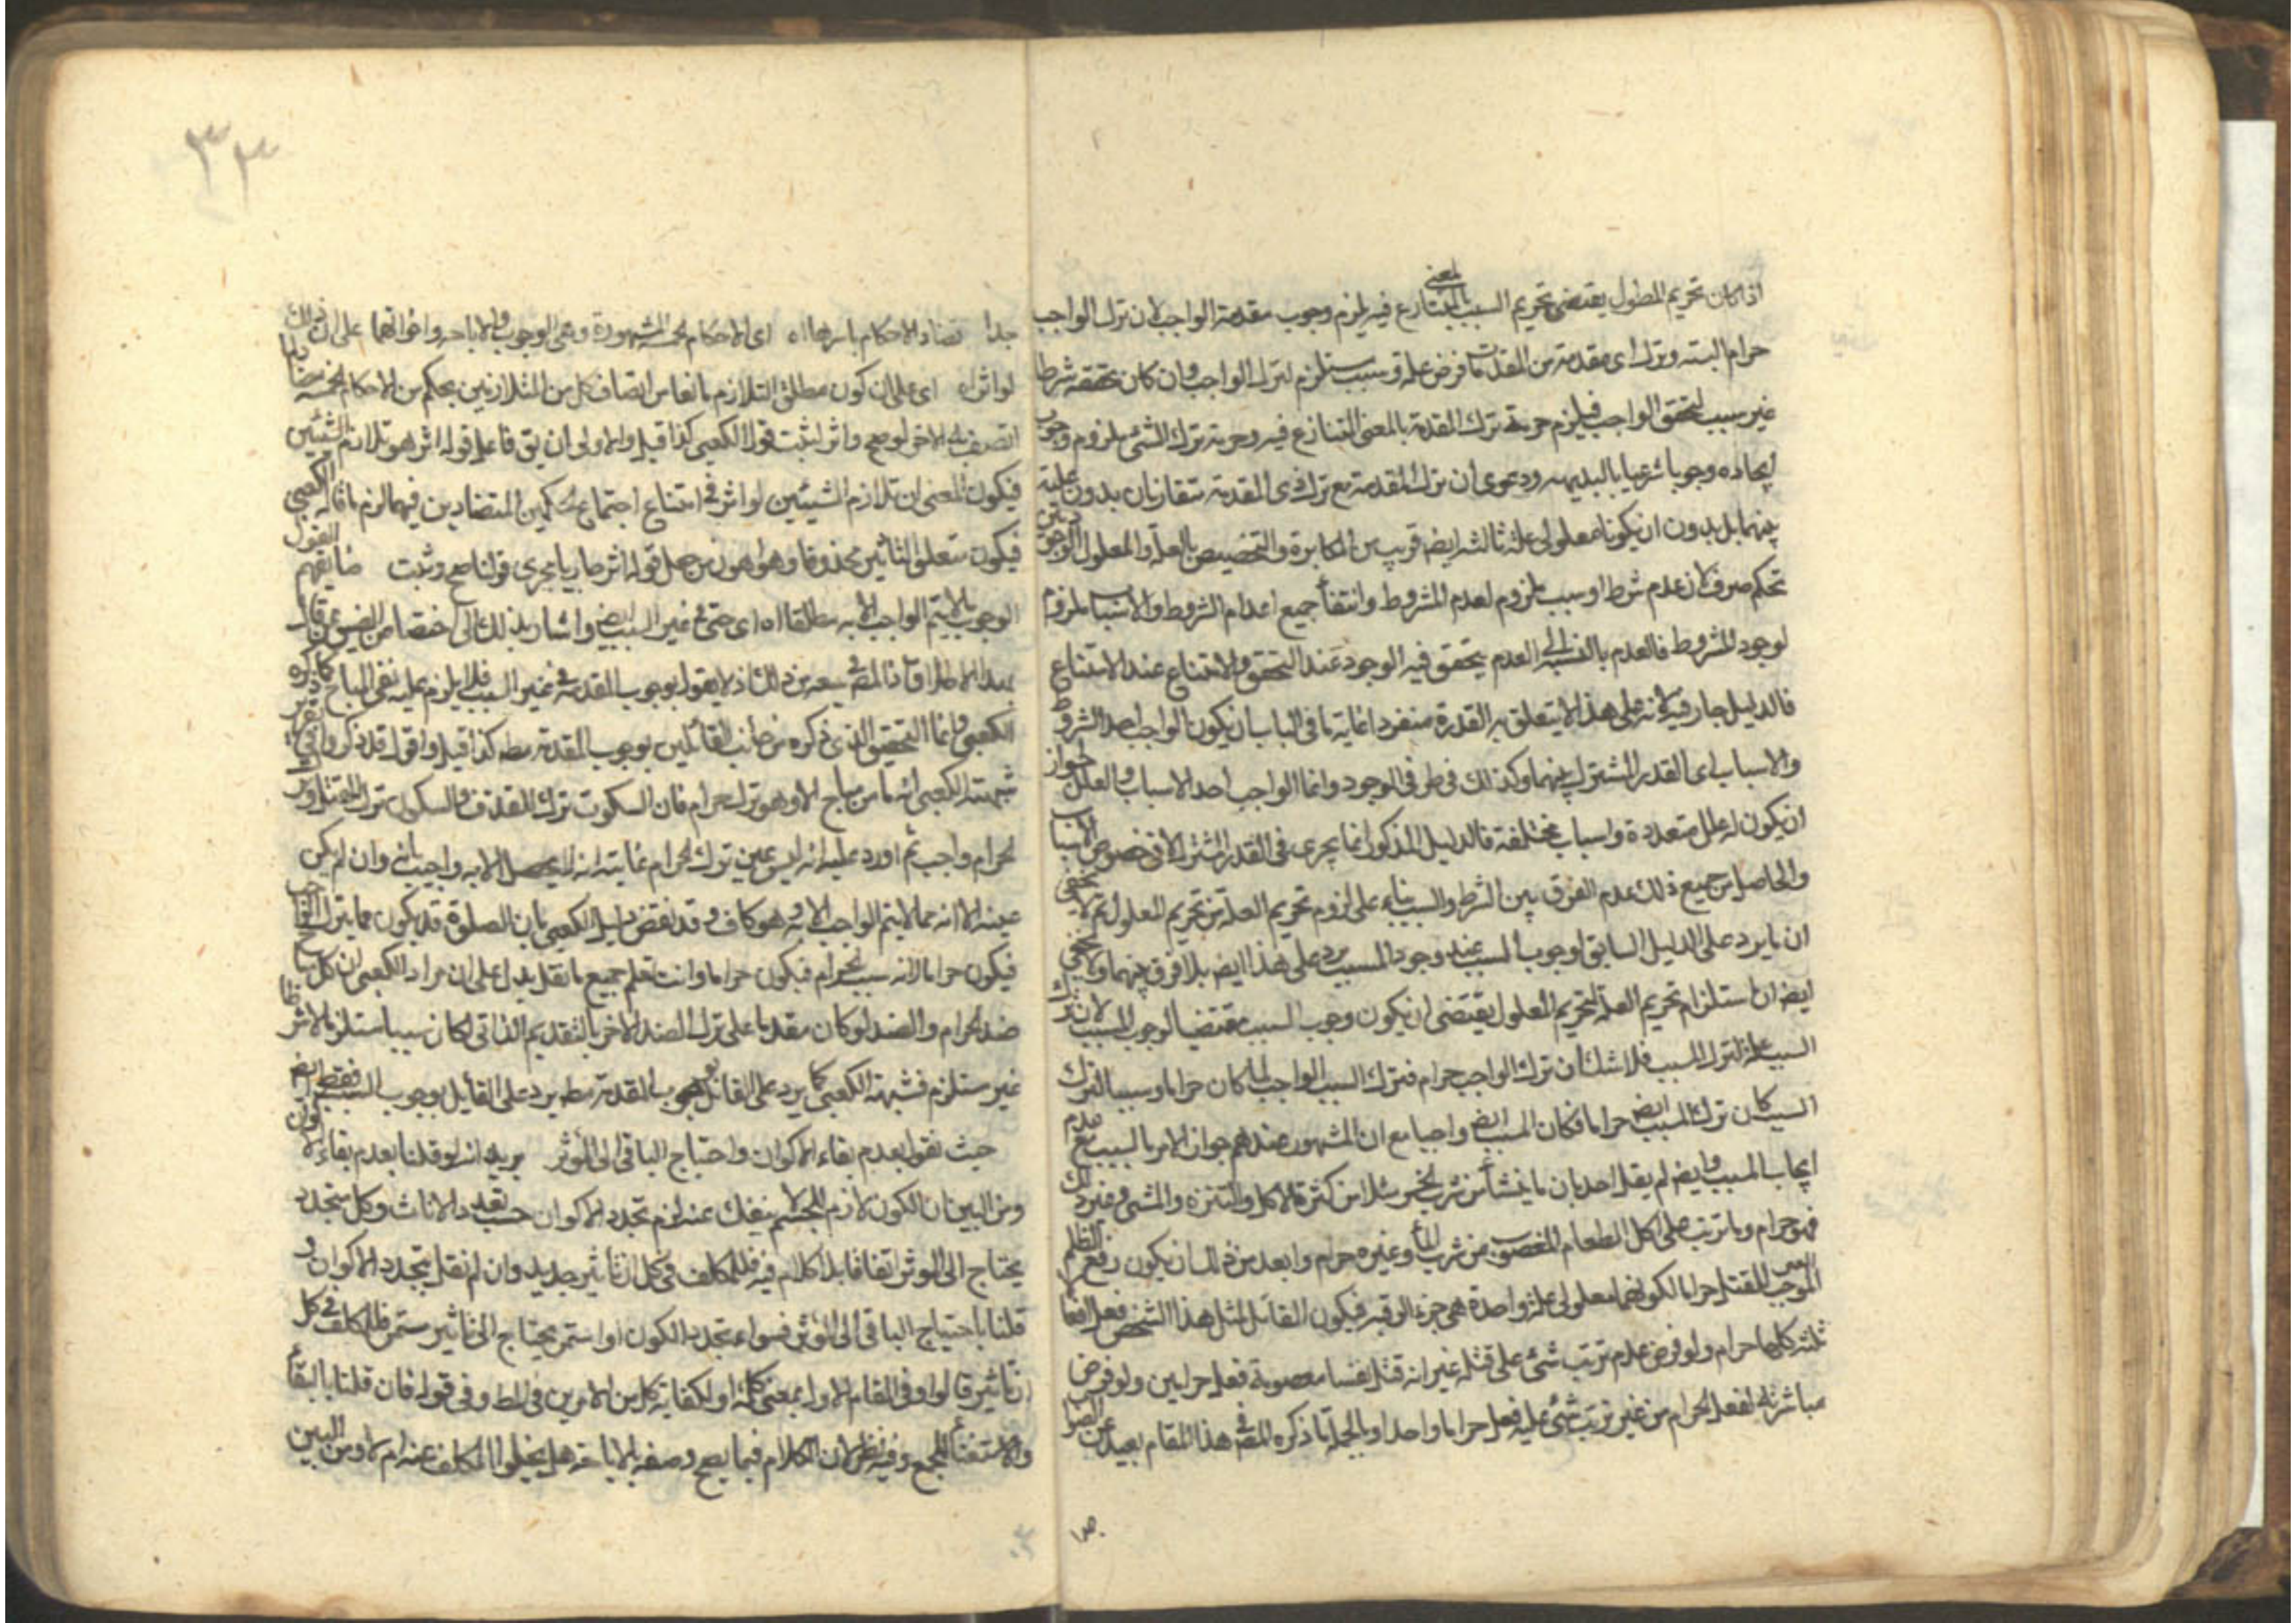 اذا كان تحريم المعلول يقتضى تحريم السبب بالمعنى المتنازع فيه يلزم وجوب مقدمة الواجب لان ترك الواجب
حرام البته وترك اى مقدمة من المقدمات فرض علة وسبب مستلزم لترك الواجب وان كان تحققه شرطا
غير سبب لتحقق الواجب فيلزم حرمة ترك المقدمة بالمعنى المتنازع فيه وحرمة ترك الشئ ملزوم وجوب
ايجاده وجوبا شرعيا بالبديهه ودعوى ان ترك المقدمة مع ترك ذى المقدمة متقارنان بدون علية
بينهما بل بدون ان يكونا معلولى علة ثالثة ايض قريب من المكابرة والتخصيص بالعلة والمعلول
تحكم صرف لان عدم شرط او سبب ملزوم لعدم المشروط وانتفاء جميع اعدام الشروط والاسباب ملزوم
لوجود المشروط فالعدم بالنسبة الى العدم يتحقق فيه الوجود عند التحقق والامتناع عند الامتناع
فالدليل جار فيه لانه على هذا لا يتعلق به القدرة منفردا غاية ما فى الباب ان يكون الواجب احد الشروط
والاسباب اى القدر المشترك بينهما وكذلك فى طرف الوجود وانما الواجب احد الاسباب والعلل لجواز
ان يكون له علل متعددة واسباب مختلفة فالدليل المذكور انما يجرى فى القدر المشترك لا فى خصوص الاسباب
والحاصل من جميع ذلك عدم الفرق بين الشرط والسبب بناء على لزوم تحريم العلة من تحريم المعلول ثم لا يخفى
ان ما يرد على الدليل السابق لوجوب السبب عند وجود المسبب يرد على هذا ايض بلا فرق بينهما ولا يخفى
ايض ان استلزام تحريم العلة لتحريم المعلول يقتضى ان يكون وجوب السبب مقتضيا لوجوب المسبب لان ترك
السبب علة لترك المسبب فلا شك ان ترك الواجب حرام فترك السبب الواجب لما كان حراما وسببا لترك
المسبب كان ترك المسبب ايض حراما فكان المسبب ايض واجبا مع ان المشهور عندهم جواز الامر بالسبب مع عدم
ايجاب المسبب وايض لم يقل احد بان ما ينشأ من شرب الخمر مثلا من كثرة الاكل والتنزه والمشى وغير ذلك
فهو حرام وما ترتب على اكل الطعام المغصوب من شرب الماء وغيره حرام وابعد من ذلك ان يكون رفع الظلم
الموجب للقتل حراما لكونهما معلولى علة واحدة هى جز الرقبة فيكون القاتل لمثل هذا الشخص فعل افعالا
ثلثه كلها حرام ولو فرض عدم ترتب شئ على قتله غير انه قتل نفسا معصومة فعل حرامين ولو فرض
مباشرته لفعل الحرام من غير ترتب شئ عليه فعل حراما واحدا وبالجملة ما ذكره المص فى هذا المقام بعيد عن الصواب
جدا
٣٣
جدا تضاد الاحكام باسرها اه اى الاحكام الخمسة المشهورة وهى الوجوب والاباحه واخواتهما على ان ذلك
لو اثر اه اى على ان كون مطلق التلازم مانعا من اتصاف كل من المتلازمين بحكم من الاحكام الخمسة
اتصف به الاخر لو صح واثر لثبت قول الكعبى كذا قيل والاولى ان يق فاعل قوله اثر هو تلازم الشيئين
فيكون المعنى ان تلازم الشيئين لو اثر فى امتناع اجتماع الحكمين المتضادين فيهما لزم ما قاله الكعبى
فيكون متعلق التأثير محذوفا وهو اهون من جعل قوله اثر جاريا مجرى قولنا صح وثبت
الوجوب بما لا يتم الواجب الا به مطلقا اه اى حتى فى غير السبب ايض واشار بذلك الى
بهذا الاطلاق اذ المص فى سعة من ذلك اذ لا يقول بوجوب المقدمة فى غير السبب فلا يلزم عليه نفى المباح كما ذكره
الكعبى وانما التحقيق الذى ذكره من جانب القائلين بوجوب المقدمة مطه كذا قيل واقول قد ذكر
شبهته الكعبى انه ما من مباح الا وهو ترك حرام فان السكوت ترك القذف والسكون ترك القتل وترك
الحرام واجب ثم اورد عليه انه ليس عين ترك الحرام غايته انه لا يحصل الا به واجيب بانه وان لم يكن
عينه الا انه مما لا يتم الواجب الا به وهو كاف وقد نقض دليل الكعبى بان الصلوة قد يكون مما يترك به الواجب
فيكون حراما لانه سبب لحرام فيكون حراما وانت تعلم جميع ما نقل يدل على ان مراد الكعبى ان كل مباح
ضد لحرام والضد لو كان مقدما على ترك الضد الاخر بالتقديم الذاتى لكان سببا مستلزما لا شرطا
غير مستلزم فشبهة الكعبى كما يرد على القائل بوجوب المقدمة مطه يرد على القائل بوجوب السبب فقط ايض
حيث نقول بعدم بقاء الاكوان واحتياج الباقى الى المؤثر يريد انه لو قلنا بعدم بقاء الاكوان
ومن البين ان الكون لازم للجسم لا ينفك عنه لزم تجدد الاكوان حسب تعدد الانات وكل متجدد
يحتاج الى المؤثر اتفاقا بلا كلام فيه فللمكلف فى كل ان تأثير جديد وان لم نقل بتجدد الاكوان و
قلنا باحتياج الباقى الى المؤثر فسواء تجدد الكون او استمر يحتاج الى تأثير مستمر فللمكلف فى كل
ان تأثير قالوا وفى المقام الاول بمعنى كلمة او لكفاية كل من الامرين فى المط وفى قوله فان قلنا بالبقاء
والاستغناء للجمع وفيه نظر لان الكلام فيما يصح وصفه بالاباحة هل يخلوا المكلف عنه ام لا ومن البين